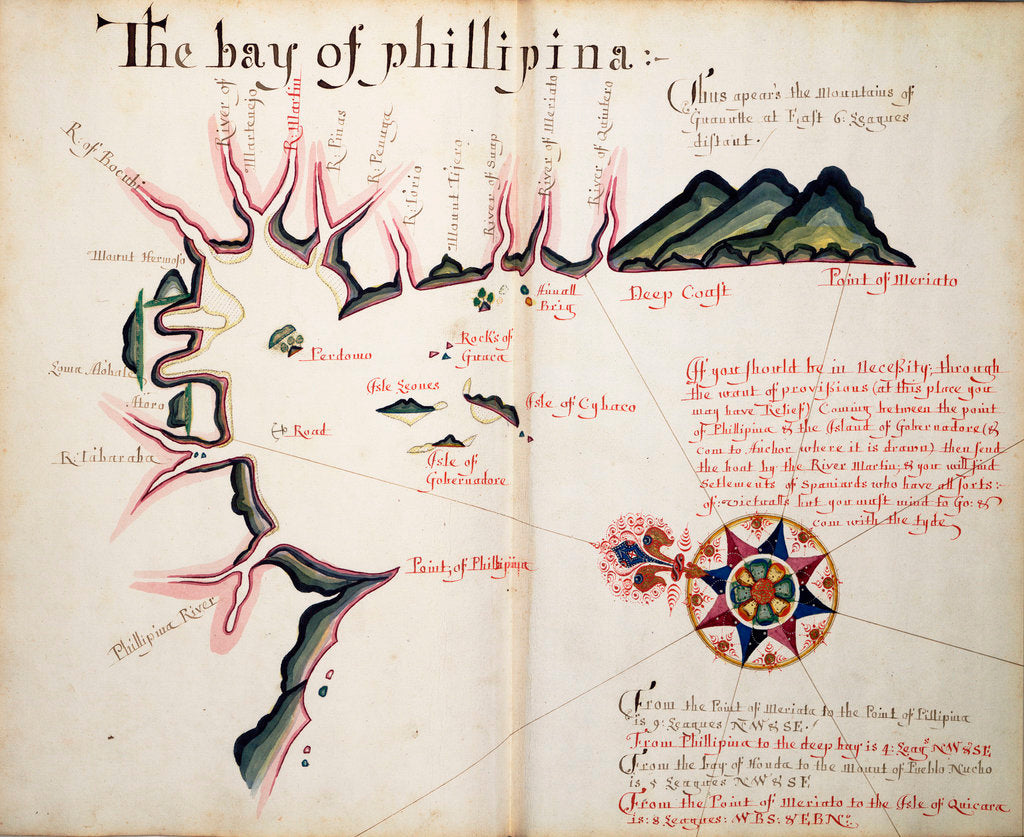 The bay of phillipina:-
Thus apears the Mountains of
Guanatte at East 6: Leagues
distant.
River of
Martenejo
R: Martin
R: Pinas
R: of Bocubi
R: Iorio
Mount Tijero
River of Suap
River of Meriato
River of Quintero
Mount Hermoso
Deep Coast
Point of Meriato
Perdomo
Rocks of
Guaca
Loma
Isle Leones
Isle of
Road
R: Tabaraba
Isle of
Gobernadore
If you should be in Necessity; through
the want of provissions (at this place you
may have Relief) Coming between the point
of Phillipina & the Island of Gobernadore (&
com to Anchor where it is drawn) then send
the boat by the River Martin; & you will find
Setlements of Spaniards who have all sorts:-
of: victualls but you must mind to Go: &
com with the tyde
Point of Phillipina
Phillipina River
From the Point of Meriata to the Point of Pillipina
is 9: Leagues NW&SE.
From Phillipina to the deep bay is 4: Leags NW&SE
From the bay of Honda to the Mount of Pueblo Nucho
Leagues NW&SE
From the Point of Meriato to the Isle of Quicara
is: 8 Leagues: WBS: & EBN: